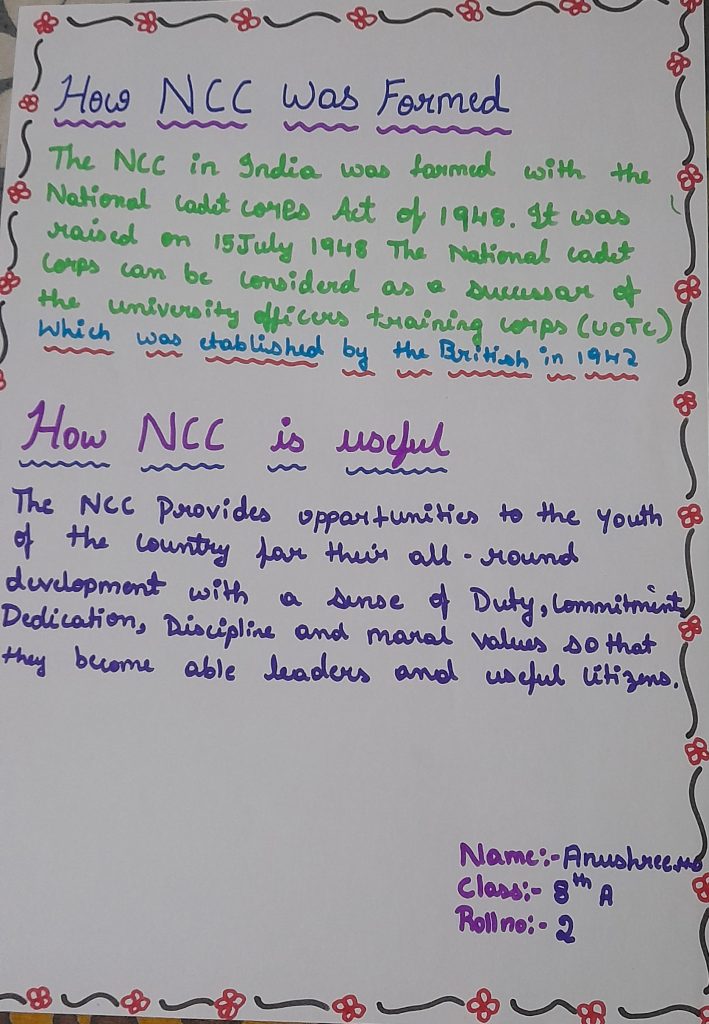 How NCC was Formed
The NCC in India was formed with the
National cadet corps Act of 1948. It was
raised on 15July 1948 The National cadet
corps can be considerd as a successar of
the university officers training corps (UOTC)
Which was etablished by the British in 1942
How NCC is useful
The NCC Provides oppartunities to the youth
of the country far their all-round
development with a sense of Duty, Commitment,
Dedication, Discipline and maral values so that
they become able leaders and useful citizens.
Name:- Anushree
Class:- 8th A
Roll no:- 2